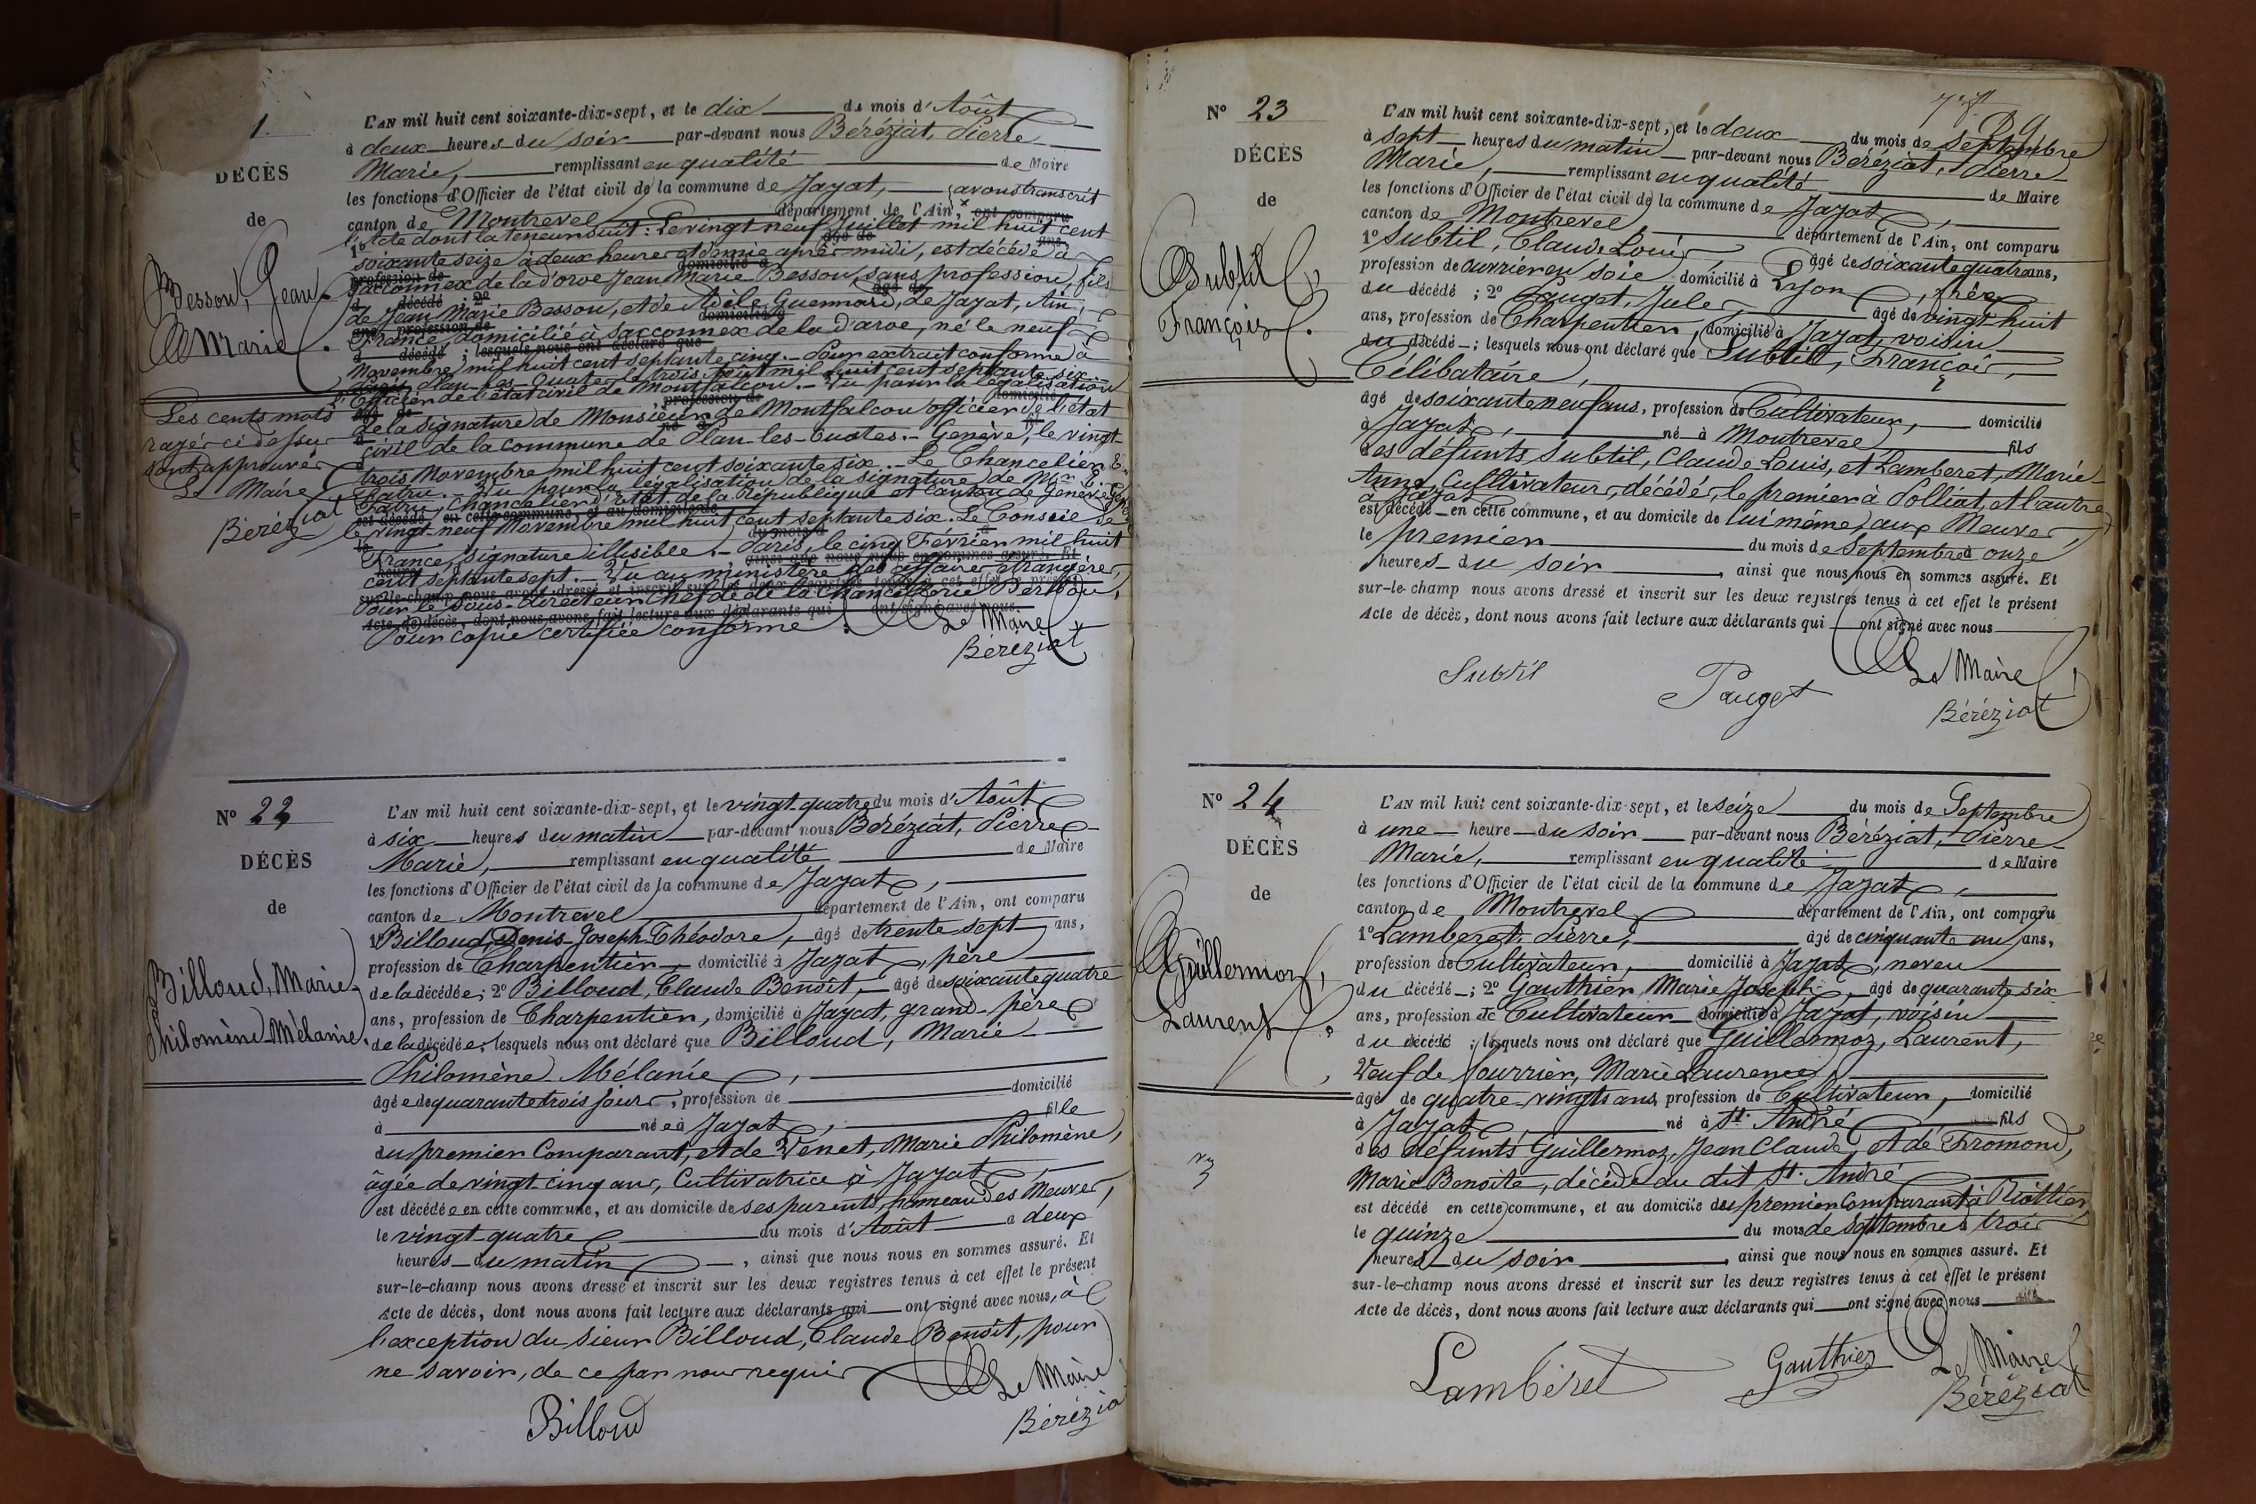 1.
DÉCÈS
de
Besson, Jean
Marie.
Les cents mots
rayés ci dessus
sont approuvés
Le Maire
Béréziat
L'AN mil huit cent soixante-dix-sept, et le dix du mois d'Août
à deux heures du soir par-devant nous Béréziat, Pierre
Marie, remplissant en qualité de Maire
les fonctions d'Officier de l'état civil de la commune de Jayat, avons transcrit
canton de Montrevel département de l'Ain, ont comparu
l'acte dont la teneur suit : Le vingt neuf Juillet mil huit cent
soixante seize à deux heures et demie après midi, est décédé à
Sacconnex de la d'arve Jean Marie Besson, sans profession, fils
de Jean Marie Besson, et de Adèle Guennard, de Jayat, Ain,
France, domicilié à Sacconnex de la d'arve, né le neuf
Novembre mil huit cent septante cinq. Pour extrait conforme à
Plan-les-Ouates le trois Août mil huit cent septante six
L'Officier de l'état civil de Montfalcon. Vu pour la légalisation
de la signature de Monsieur de Montfalcon officier de l'état
civil de la commune de Plan-les-Ouates. Genève, le vingt
trois Novembre mil huit cent soixante six. Le Chancelier E.
Patru. Vu pour la légalisation de la signature de Mr E.
Patru, Chancelier d'état de la République et canton de Genève
le vingt-neuf Novembre mil huit cent septante six. Le Consul de
France, signature illisible. Paris, le cinq Février mil huit
cent septante sept. Vu au ministère des affaires étrangères,
Pour le Sous-directeur chef de la Chancellerie Berton,
Pour copie certifiée conforme. Le Maire
Béréziat
N° 22
DÉCÈS
de
Billoud, Marie
Philomène Mélanie.
L'AN mil huit cent soixante-dix-sept, et le vingt-quatre du mois d'Août
à six heures du matin par-devant nous Béréziat, Pierre
Marie, remplissant en qualité de Maire
les fonctions d'Officier de l'état civil de la commune de Jayat,
canton de Montrevel département de l'Ain, ont comparu
1° Billoud, Denis Joseph Théodore, âgé de trente sept ans,
profession de Charpentier domicilié à Jayat, père
de la décédée; 2° Billoud, Claude Benoît, âgé de soixante quatre
ans, profession de Charpentier, domicilié à Jayat, grand-père
de la décédée; lesquels nous ont déclaré que Billoud, Marie
Philomène Mélanie,
âgée de quarante trois jours, profession de domicilié
à née à Jayat, fille
du premier Comparant, et de Venet, Marie Philomène,
âgée de vingt-cinq ans, Cultivatrice à Jayat
est décédée en cette commune, et au domicile de ses parents, hameau des Meuves,
le vingt quatre du mois d'Août à deux
heures du matin, ainsi que nous nous en sommes assuré. Et
sur-le-champ nous avons dressé et inscrit sur les deux registres tenus à cet effet le présent
Acte de décès, dont nous avons fait lecture aux déclarants qui ont signé avec nous, à
l'exception du sieur Billoud, Claude Benoît, pour
ne savoir, de ce par nous requis
Le Maire
Billoud
Béréziat
N° 23
DÉCÈS
de
Subtil
François.
89
L'AN mil huit cent soixante-dix-sept, et le deux du mois de Septembre
à sept heures du matin par-devant nous Béréziat, Pierre
Marie, remplissant en qualité de Maire
les fonctions d'Officier de l'état civil de la commune de Jayat,
canton de Montrevel département de l'Ain, ont comparu
1° Subtil, Claude Louis âgé de soixante quatre ans,
profession de ouvrier en soie domicilié à Lyon, frère
du décédé ; 2° Pauget, Jule âgé de vingt huit
ans, profession de Charpentier, domicilié à Jayat, voisin
du décédé ; lesquels nous ont déclaré que Subtil, François,
Célibataire,
âgé de soixante neuf ans, profession de Cultivateur, domicilié
à Jayat, né à Montrevel fils
des défunts Subtil, Claude Louis, et Lamberet, Marie
Anne, Cultivateurs, décédés, le premier à Polliat, et l'autre
à Jayat
est décédé en cette commune, et au domicile de lui même, aux Meuves,
le premier du mois de Septembre à onze
heures du soir, ainsi que nous nous en sommes assuré. Et
sur-le-champ nous avons dressé et inscrit sur les deux registres tenus à cet effet le présent
Acte de décès, dont nous avons fait lecture aux déclarants qui ont signé avec nous
Subtil
Pauget
Le Maire
Béréziat
N° 24
DÉCÈS
de
Guillermoz,
Laurent.
L'AN mil huit cent soixante-dix-sept, et le seize du mois de Septembre
à une heure du soir par-devant nous Béréziat, Pierre
Marie, remplissant en qualité de Maire
les fonctions d'Officier de l'état civil de la commune de Jayat,
canton de Montrevel département de l'Ain, ont comparu
1° Lamberet, Pierre, âgé de cinquante un ans,
profession de Cultivateur, domicilié à Jayat, neveu
du décédé ; 2° Gauthier, Marie Joseph, âgé de quarante six
ans, profession de Cultivateur domicilié à Jayat, voisin
du décédé ; lesquels nous ont déclaré que Guillermoz, Laurent,
Veuf de Fourrier, Marie Laurence,
âgé de quatre vingts ans, profession de Cultivateur, domicilié
à Jayat né à St André fils
des défunts Guillermoz, Jean Claude, et de Fromond,
Marie Benoite, décédés du dit St André
est décédé en cette commune, et au domicile du premier Comparant à Riottier,
le quinze du mois de Septembre à trois
heures du soir, ainsi que nous nous en sommes assuré. Et
sur-le-champ nous avons dressé et inscrit sur les deux registres tenus à cet effet le présent
Acte de décès, dont nous avons fait lecture aux déclarants qui ont signé avec nous
Lamberet
Gauthier
Le Maire
Béréziat